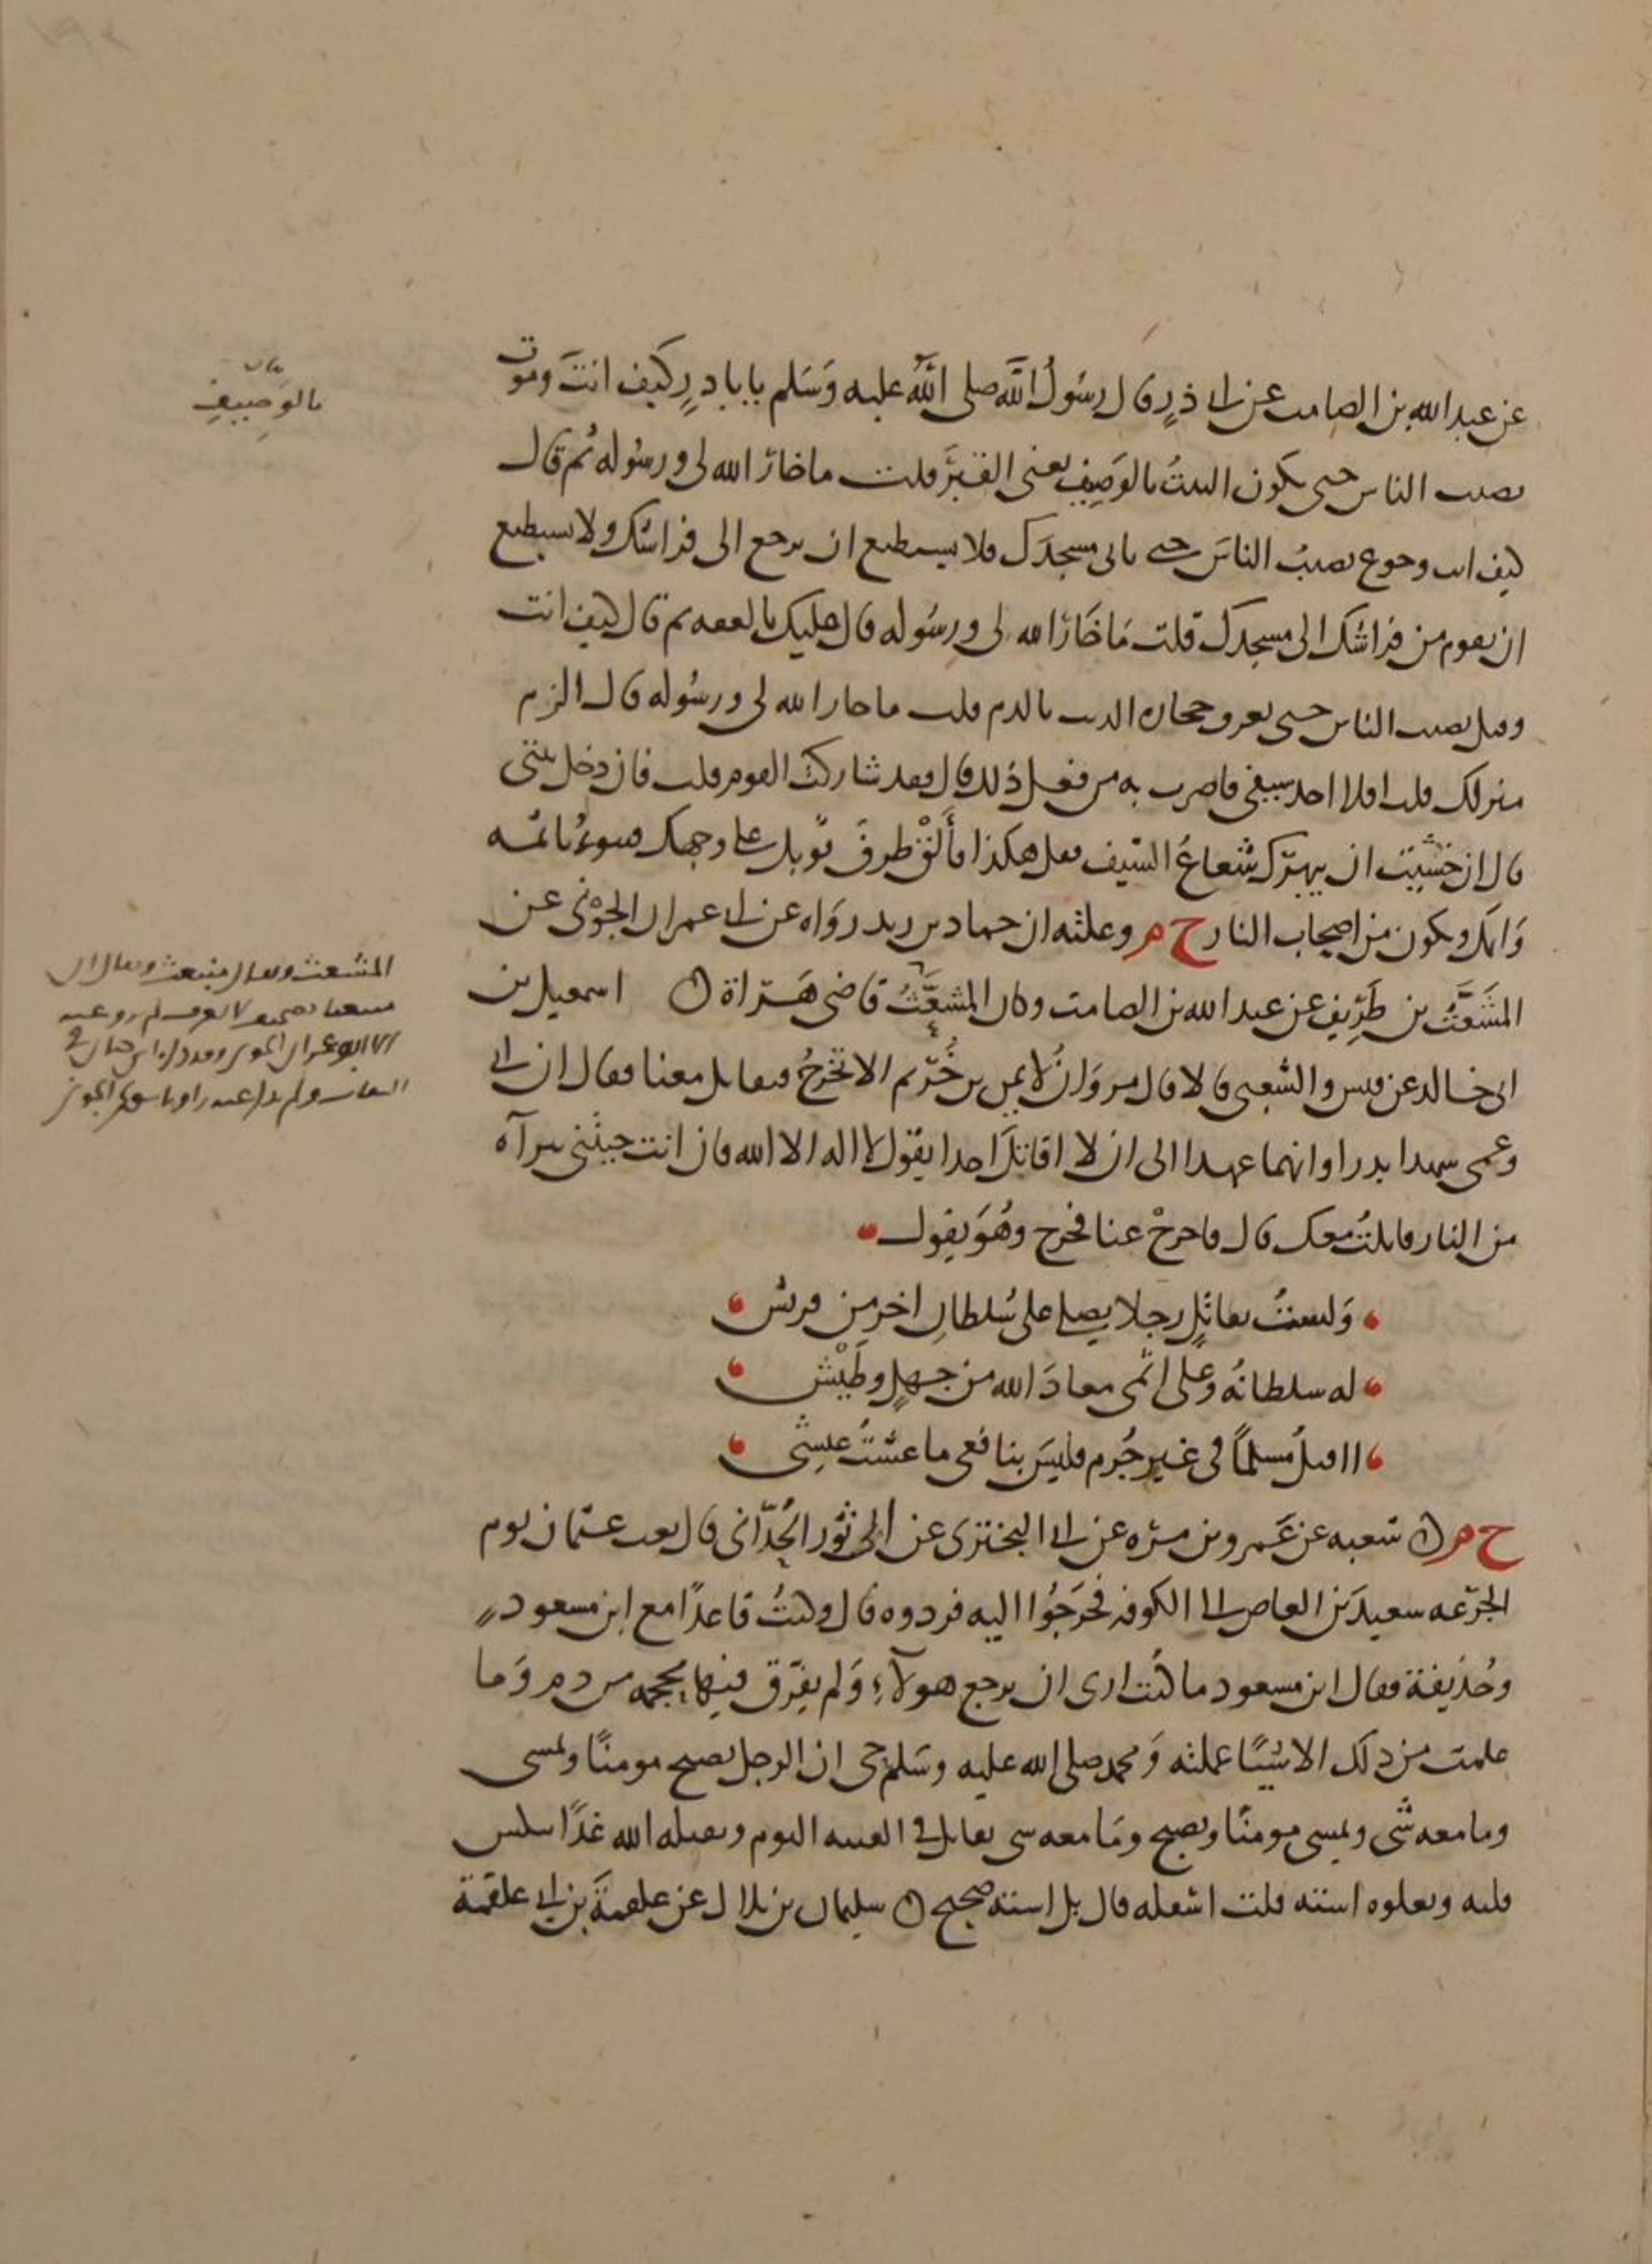 عن عبد الله بن الصامت عن ابي ذرٍ قال رسُولُ اللَّه صلى اللَّهُ عليه وَسَلم يا باذرٍ كيف انتَ وموت
يصيب الناس حتى يكون البيتُ بالوَصِيفِ يعنى القبَرَ قلت ما خارَ الله لى ورسُوله ثم قال
كيف انت وجوع يصيبُ الناسَ حتى تاتى مسجدَك فلا يستطيع ان ترجع الى فراشك ولا تستطيع
ان تقوم من فراشك الى مسجدك قلت مَا خَارَ الله لى ورسُوله قال عليك بالعفه ثم قال كيف انت
وقتل يصيب الناس حتى تغرق حجاره الزيت بالدم قلت ما خار الله لى ورسُوله قال الزم
منزلك قلت افلا اخذ سيفى فاضرب به من فعل ذلك قال فقد شاركتَ القوم قلت فان دخل بيتى
قال ان خشيت ان يبهرَك شُعاعُ السَّيف فقل هكذا فأَلقْ طرفَ ثوبك على وجهك فيبوءُ باثمه
وَاثمك ويكون من اصحاب النار خ م وعلته ان حماد بن زيد رَوَاه عن ابى عمران الجَوْنى عن
المشَعَّثُ بن طَرِيفٍ عن عبد الله بن الصامت وكان المشعَّثُ قاضى هَرَاة ن اسمعيل بن
ابى خالد عن قيس والشعبى قالا قال مروَان لايمن بن خُرَيم الا تخرُجُ فتقاتل معنا فقال ان ابى
وعمى شهدا بدرا وانهما عهدا الى ان لا اقاتلَ احدا يقول لا اله الا الله فان انت جيتنى ببرآه
من النار قاتلتُ معك قال فاخرجْ عنا فخرج وهُوَ يقول
وَلستُ بقاتلٍ رجلا يصلى على سُلطانِ اخرَ من قريش
له سلطانُه وعلى اثمى معاذَ الله من جهلٍ وطَيْش
ااقتلُ مُسلماً فى غير جُرم فليسَ بنافعى ما عشتُ عيشِى
خ م ن شعبه عن عَمرو بن مرَّه عن ابى البخترى عن ابى ثَور الحُدّانى قال بعث عثمان يوم
الجرَعه سعيدَ بن العاص الى الكوفه فخَرَجُوا اليه فردوه قال وكنتُ قاعدًا مع ابن مسعود
وحُذيفة فقال ابن مسعود ما كنت ارى ان يرجع هولآءِ وَلم يهرَق فيها محجمه من دم وَما
علمت من ذلك الا شَيئًا علمته وَمحمد صلى الله عليه وسَلم حى ان الرجل يصبح مومنًا ويمسى
وما معه شى ويمسى مومنًا ويصبح ومَا معه شى يقاتل فى الفتنه اليوم ويقتله الله غدًا ينكس
قلبه ويعلوه استه قلت اسفله قال بل استه صحيح ن سليمان بن بلال عن علقمةَ بن ابى علقمة
بالوَصِيفِ
المشعث ويقال منبعث ويقال ان